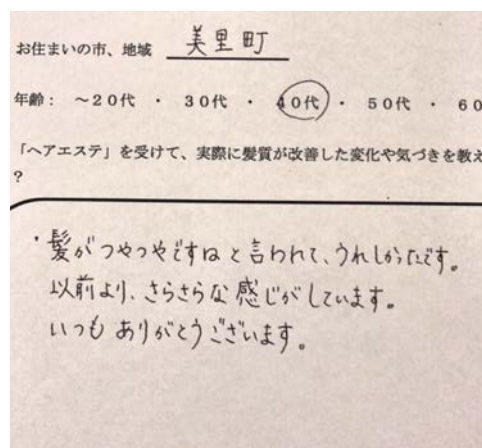 お住まいの市、地域 美里町
年齢： ～20代 ・ 30代 ・ 40代 ・ 50代 ・ 60
「ヘアエステ」を受けて、実際に髪質が改善した変化や気づきを教え
？
・髪がつやつやですねと言われて、うれしかったです。
以前より、さらさらな感じがしています。
いつもありがとうございます。